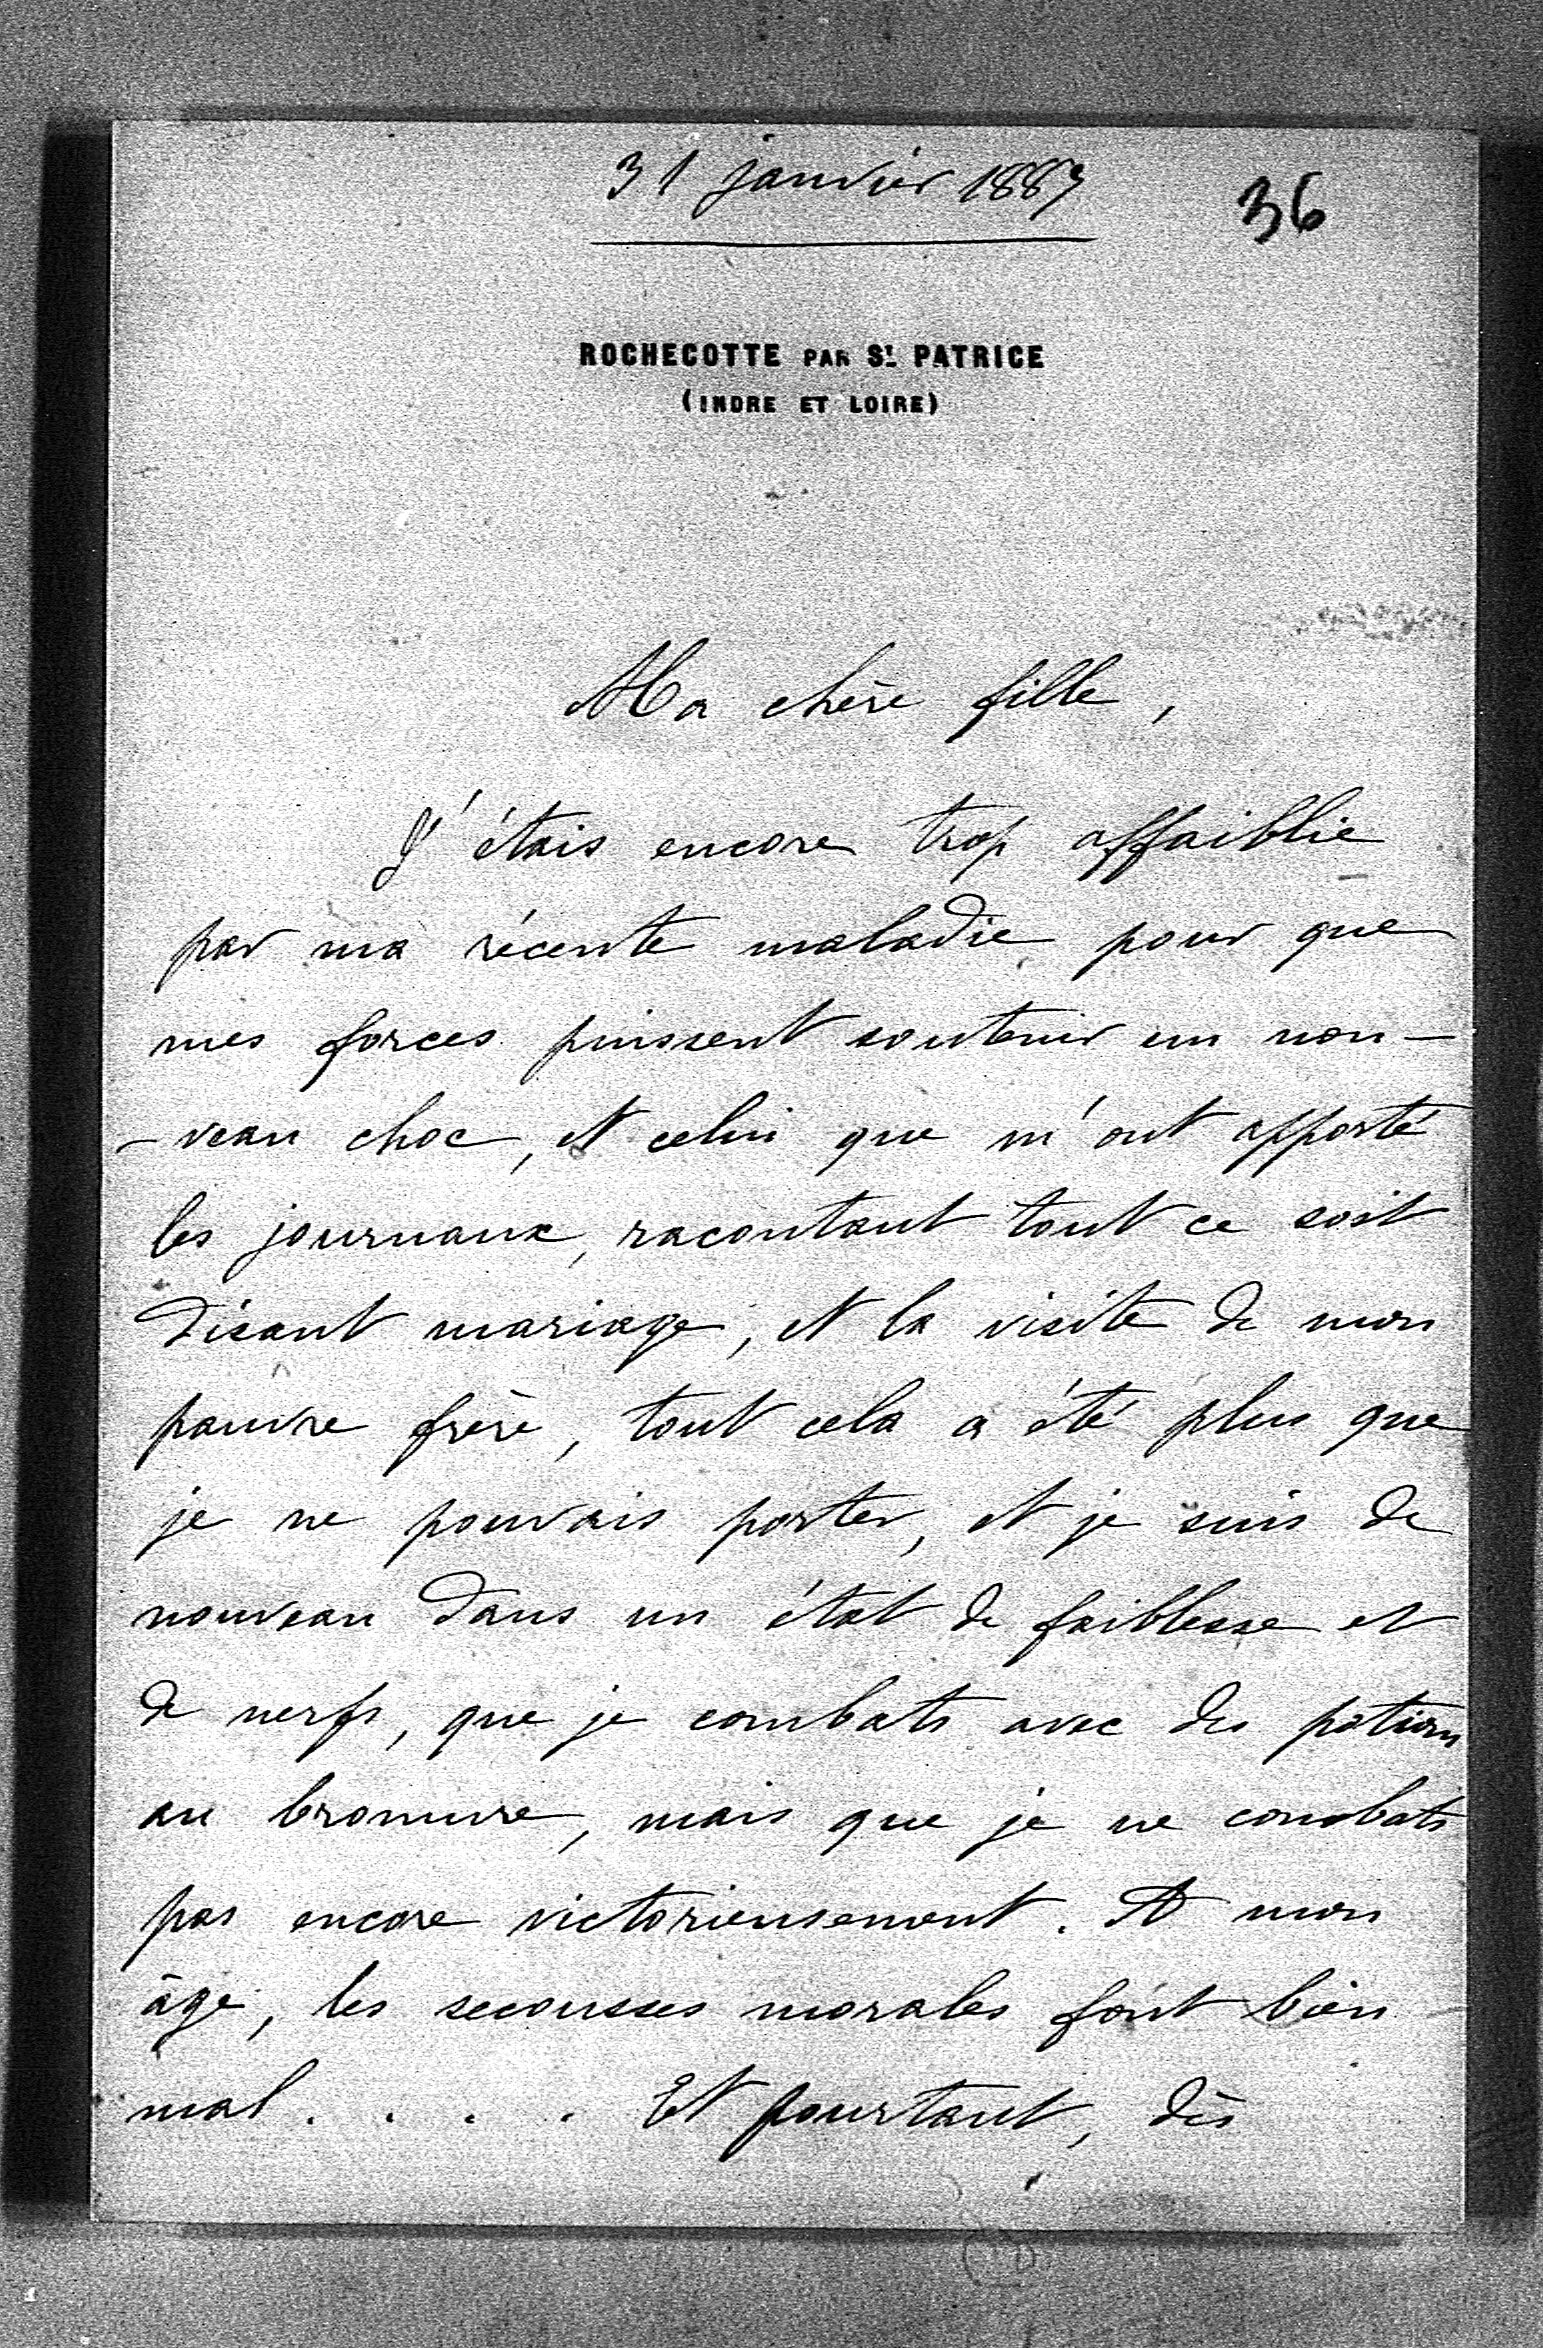 31 janvier 1887
36
ROCHECOTTE PAR St. PATRICE
(INDRE ET LOIRE)
Ma chère fille,
J'étais encore trop affaiblie
par ma récente maladie pour que
mes forces puissent soutenir un nou-
-veau choc, et celui que m'ont apporté
les journaux, racontant tout ce soit
disant mariage, et la visite de mon
pauvre frère, tout cela a été plus que
je ne pouvais porter, et je suis de
nouveau dans un état de faiblesse et
de nerfs, que je combats avec des potions
au bromure, mais que je ne combats
pas encore victorieusement. A mon
âge, les secousses morales font bien
mal.... Et pourtant, dès